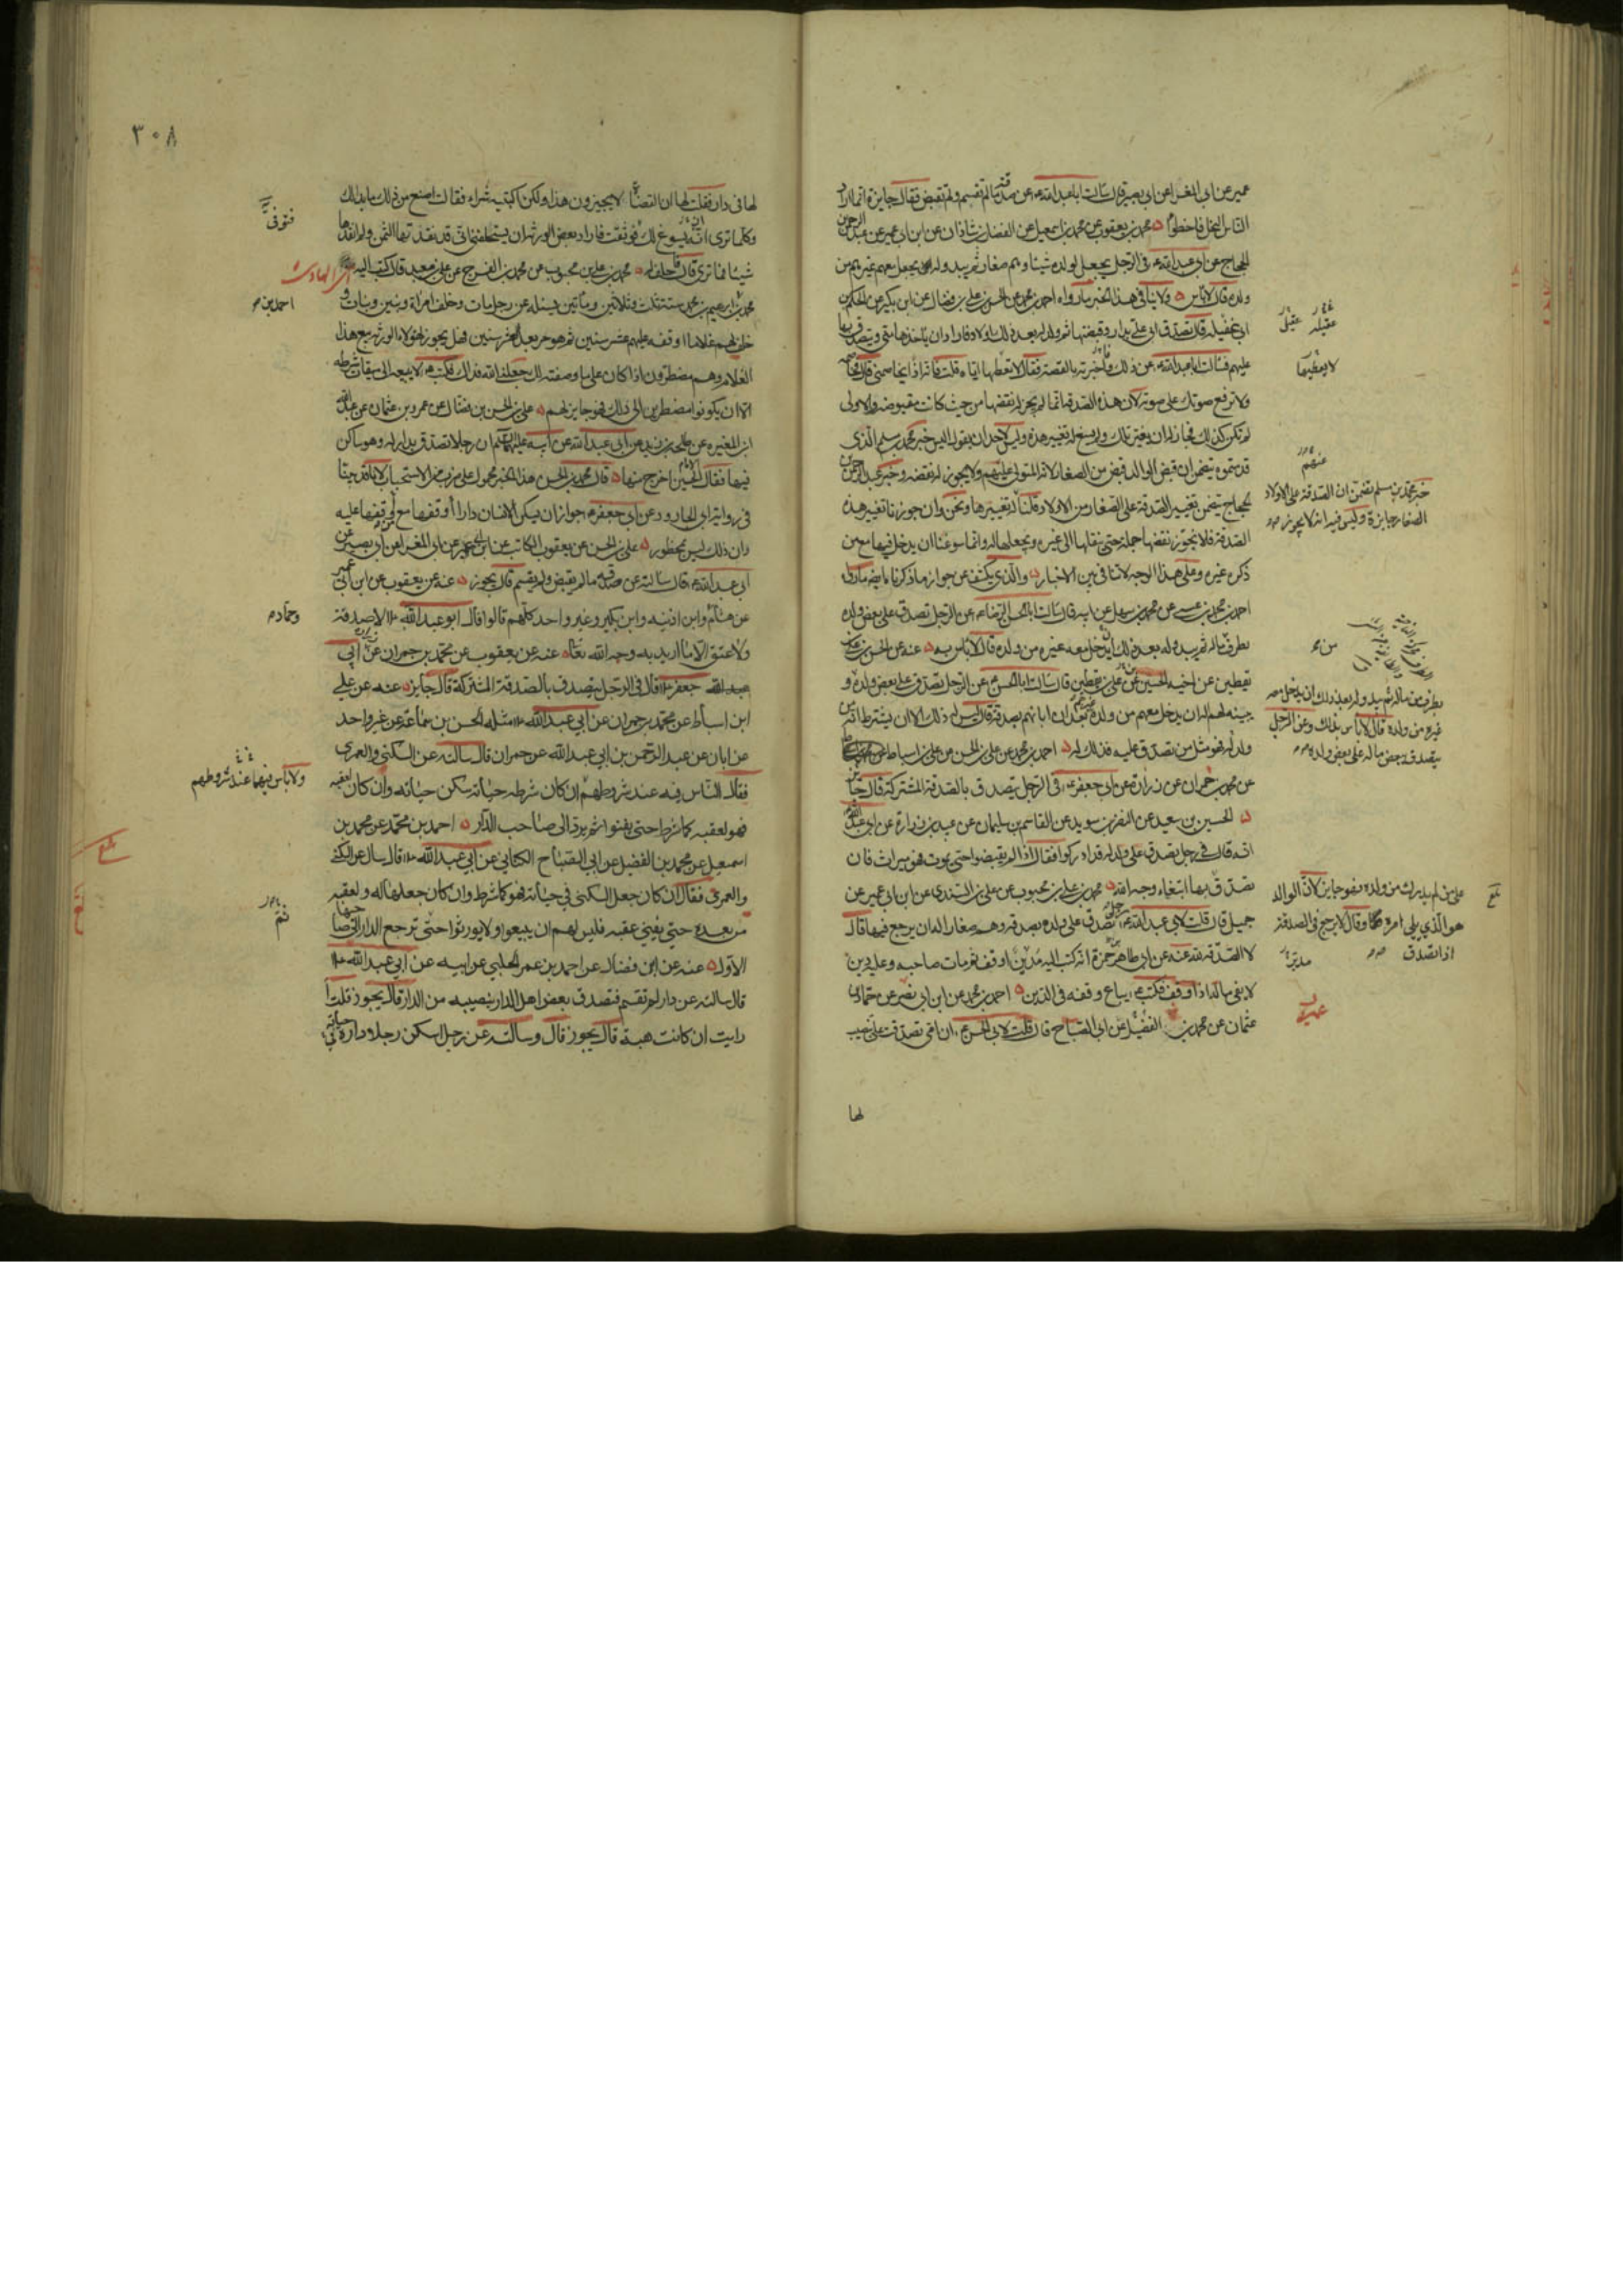 عمير عن ابي المغرا عن ابي بصير قال سالت ابا عبد الله ع عن صدقة ما لم تقسم ولم تقبض فقال جايزة انما اراد
الناس النحل فاخطؤا محمد بن يعقوب عن محمد بن اسمعيل عن الفضل بن شاذان عن ابن ابي عمير عن عبد الرحمن
الحجاج عن ابي عبد الله ع في الرجل يجعل لولده شيئا وهم صغار ثم يبدو له يجعل معهم غيرهم من
ولده قال لا باس ولا ينافي هذا الخبر ما رواه احمد بن محمد عن الحسن بن علي بن فضال عن ابن بكير عن الحكم بن
ابي عقيله قال تصدق ابي علي بدار وقبضتها ثم ولد له بعد ذلك اولاد فاراد ان ياخذها مني ويتصدق بها
عليهم فسالت ابا عبد الله ع عن ذلك واخبرته بالقصة فقال لا تعطها اياه قلت فانه اذا يخاصمني قال فخاصمه
ولا ترفع صوتك على صوته لان هذه الصدقة انما لم يجز له نقضها من حيث كانت مقبوضة والاولى
لم تكن كذلك فجاز له ان يغير تلك ولم يسغ له تغيير هذه وليس لاحد ان يقول اليس خبر محمد بن مسلم الذي
قدمتموه يتضمن ان قبض الوالد قبض من الصغار لانه المتولي عليهم ولا يجوز له نقضه وخبر عبد الرحمن
الحجاج يتضمن تغيير الصدقة على الصغار من الاولاد قلنا تغييرها ونحن وان جوزنا تغيير هذه
الصدقة فلا يجوز نقضها جملة حتى ينقلها الى غيره ويجعلها له وانما سوغنا ان يدخل فيها مع من
ذكره غيره وعلى هذا الوجه لا تنافي بين الاخبار والذي يكشف عن جواز ما ذكرنا ايضا ما رواه
احمد بن محمد بن عيسى عن محمد بن سهل عن ابيه قال سالت ابا الحسن الرضا ع عن الرجل تصدق على بعض ولده
بطرف ماله ثم يبدو له بعد ذلك ان يدخل معه غيره من ولده قال لا باس به عنه عن الحسن بن علي بن
يقطين عن اخيه الحسين عن علي بن يقطين قال سالت ابا الحسن ع عن الرجل تصدق على بعض ولده و
يبينه لهم اله ان يدخل معهم من ولده غيرهم بعد ان ابانهم بصدقة قال ليس له ذلك الا ان يشترط انه من
ولد له فهو مثل من تصدق عليه فذلك له احمد بن محمد عن علي بن الحسن عن علي بن اسباط
عن محمد بن حمران عن زرارة عن ابي جعفر ع في الرجل يتصدق بالصدقة المشتركة قال جايز
الحسين بن سعيد عن النضر بن سويد عن القاسم بن سليمان عن عبيد بن زرارة عن ابي عبد الله
انه قال في رجل تصدق على ولد له قد ادركوا فقال اذا لم يقبضوا حتى يموت فهو ميراث فان
تصدق بها ابتغاء وجه الله محمد بن علي بن محبوب عن علي بن السندي عن ابن ابي عمير عن
جميل قال قلت لابي عبد الله ع رجل تصدق على ولده بصدقة وهم صغار اله ان يرجع فيها قال
لا الصدقة لله عنه عن ابي طاهر بن حمزة انه كتب اليه مدين اوقف ثم مات صاحبه وعليه دين
لا يفي ماله اذا وقف فكتب ع يباع وقفه في الدين احمد بن محمد عن ابن ابي نصر عن حماد بن
عثمان عن محمد بن الفضيل عن ابي الصباح قال قلت لابي الحسن ع ان امي تصدقت علي بنصيب
لها
عقيله عقيل
لا يعطيها
عنهم
خبر محمد بن مسلم تضمن ان الصدقة على الاولاد
الصغار جايزة وليس فيه انه لا يجوز
بطرف من ماله ثم يبدو له بعد ذلك ان يدخل معه
غيره من ولده قال لا باس بذلك وعن الرجل
يتصدق ببعض ماله على بعض ولده
على من لم يدرك من ولده فهو جايز لان الوالد
هو الذي يلي امره وقال لا يرجع في الصدقة
اذا تصدق
مدين
بلغ
٣٠٨
لها في دار فقلت لها ان القضاة لا يجيزون هذا ولكن اكتبيه شراء فقالت اصنع من ذلك ما بدا لك
وكلما ترى انه يسوغ لك فوثقت فاراد بعض الورثة ان يستحلفني اني قد نقدتها الثمن ولم انقدها
شيئا فما ترى قال فاحلف له محمد بن علي بن محبوب عن محمد بن الفرج عن علي بن معبد قال كتب اليه
محمد بن ابرهيم بن محمد سنة ثلث وثلاثين ومأتين يسئله عن رجل مات وخلف امراة وبنين وبنات و
خلف لهم غلاما اوقفه عليهم عشر سنين ثم هو حر بعد العشر سنين فهل يجوز لهؤلاء الورثة بيع هذا
الغلام وهم مضطرون اذا كان على ما وصفته لك جعلني الله فداك فكتب ع لا يبيعه الى ميقات شرطه
الا ان يكونوا مضطرين الى ذلك فهو جايز لهم علي بن الحسن بن فضال عن عمرو بن عثمان عن عبد الله
ابن المغيره عن طلحة بن زيد عن ابي عبد الله عن ابيه عليهما السلم ان رجلا تصدق بدار له وهو ساكن
فيها فقال الحين اخرج منها قال محمد بن الحسن هذا الخبر محمول على ضرب من الاستحباب لانا قد بينا
في رواية ابي الجارود عن ابي جعفر ع جواز ان يسكن الانسان دارا اوقفها مع من وقفها عليه
وان ذلك ليس بمحظور علي بن الحسن عن يعقوب الكاتب عن ابن ابي عمير عن ابي المغرا عن ابي بصير عن
ابي عبد الله ع قال سالته عن صدقة ما لم يقبض ولم يقسم قال يجوز عنه عن يعقوب عن ابن ابي عمير
عن هشام وابن اذينه وابن بكير وغير واحد كلهم قالوا قال ابو عبد الله ع لا صدقة
ولا عتق الا ما اريد به وجه الله تعالى عنه عن يعقوب عن محمد بن حمران عن زرارة عن ابي
عبد الله جعفر ع قال في الرجل يتصدق بالصدقة المشتركة قال جايز عنه عن علي
ابن اسباط عن محمد بن حمران عن ابي عبد الله ع مثله الحسن بن سماعة عن غير واحد
عن ابان عن عبد الرحمن بن ابي عبد الله عن حمران قال سالته عن السكنى والعمرى
فقال الناس فيه عند شروطهم ان كان شرطه حياته سكن حياته وان كان لعقبه
فهو لعقبه كما شرط حتى يفنوا ثم يرد الى صاحب الدار احمد بن محمد عن محمد بن
اسمعيل عن محمد بن الفضيل عن ابي الصباح الكناني عن ابي عبد الله ع قال سال عن السكنى
والعمرى فقال ان كان جعل السكنى في حياته فهو كما شرط وان كان جعلها له ولعقبه
من بعده حتى يفني عقبه فليس لهم ان يبيعوا ولا يورثوا حتى ترجع الدار الى صاحبها
الاول عنه عن ابن فضال عن احمد بن عمر الحلبي عن ابيه عن ابي عبد الله ع
قال سالته عن دار لم تقسم فتصدق بعض اهل الدار بنصيبه من الدار قال يجوز قلت ا
رايت ان كانت هبة قال يجوز قال وسالته عن رجل اسكن رجلا داره حياته
احمد بن
وحماد
ولا باس فيهما عند شروطهم
ثم
بلغ